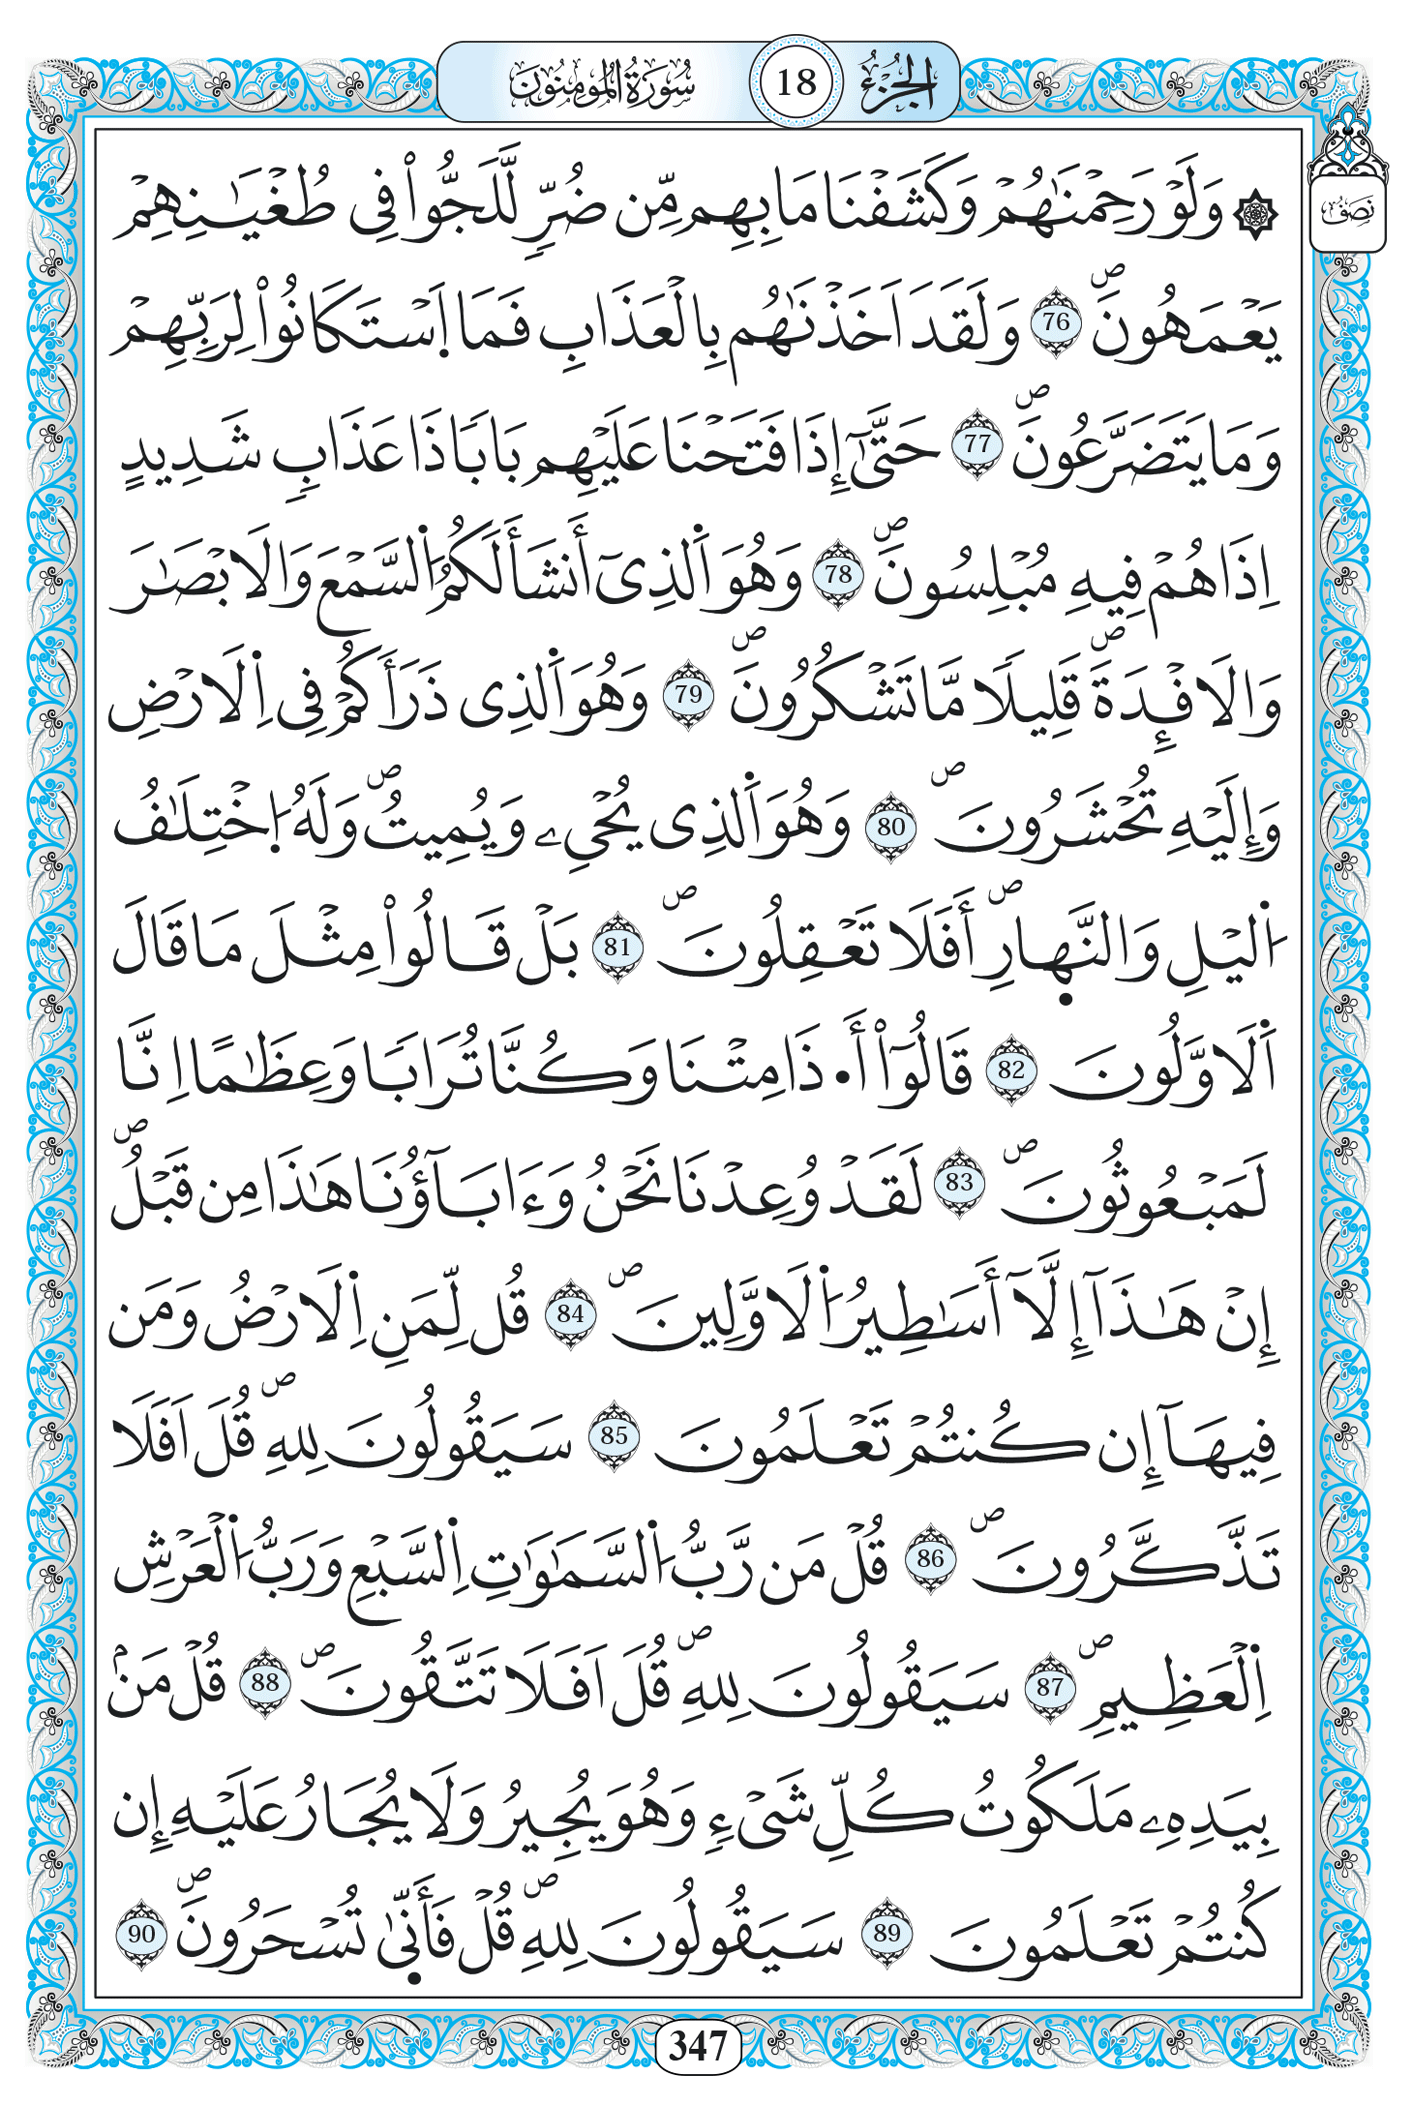 الجزء 18 سورة المومنون
نصف
۞ وَلَوْ رَحِمْنَٰهُمْ وَكَشَفْنَا مَا بِهِم مِّن ضُرٍّ لَّلَجُّواْ فِى طُغْيَٰنِهِمْ
يَعْمَهُونَۖ 76 وَلَقَدَ اَخَذْنَٰهُم بِالْعَذَابِ فَمَا اَسْتَكَانُواْ لِرَبِّهِمْ
وَمَا يَتَضَرَّعُونَۖ 77 حَتَّىٰٓ إِذَا فَتَحْنَا عَلَيْهِم بَابًا ذَا عَذَابٍ شَدِيدٍ
اِذَا هُمْ فِيهِ مُبْلِسُونَۖ 78 وَهُوَ اَلذِىٓ أَنشَأَ لَكُمُ اُلسَّمْعَ وَالَابْصَٰرَ
وَالَافْـِٕدَةَۖ قَلِيلًا مَّا تَشْكُرُونَۖ 79 وَهُوَ اَلذِى ذَرَأَكُمْ فِى اِلَارْضِ
وَإِلَيْهِ تُحْشَرُونَۖ 80 وَهُوَ اَلذِى يُحْيِۦ وَيُمِيتُۖ وَلَهُ اُخْتِلَٰفُ
اُليْلِ وَالنَّهارِۖ أَفَلَا تَعْقِلُونَۖ 81 بَلْ قَالُواْ مِثْلَ مَا قَالَ
اَلَاوَّلُونَ 82 قَالُوٓاْ أَ۟ذَا مِتْنَا وَكُنَّا تُرَابًا وَعِظَٰمًا اِنَّا
لَمَبْعُوثُونَۖ 83 لَقَدْ وُعِدْنَا نَحْنُ وَءَابَآؤُنَا هَٰذَا مِن قَبْلُۖ
إِنْ هَٰذَآ إِلَّآ أَسَٰطِيرُ اُلَاوَّلِينَۖ 84 قُل لِّمَنِ اِلَارْضُ وَمَن
فِيهَآ إِن كُنتُمْ تَعْلَمُونَ 85 سَيَقُولُونَ لِلهِۖ قُلَ اَفَلَا
تَذَّكَّرُونَۖ 86 قُلْ مَن رَّبُّ اُلسَّمَٰوَٰتِ اِلسَّبْعِ وَرَبُّ اُلْعَرْشِ
اِلْعَظِيمِۖ 87 سَيَقُولُونَ لِلهِۖ قُلَ اَفَلَا تَتَّقُونَۖ 88 قُلْ مَنۢ
بِيَدِهِۦ مَلَكُوتُ كُلِّ شَىْءٍ وَهُوَ يُجِيرُ وَلَا يُجَارُ عَلَيْهِ إِن
كُنتُمْ تَعْلَمُونَ 89 سَيَقُولُونَ لِلهِۖ قُلْ فَأَنّ۪ىٰ تُسْحَرُونَۖ 90
347